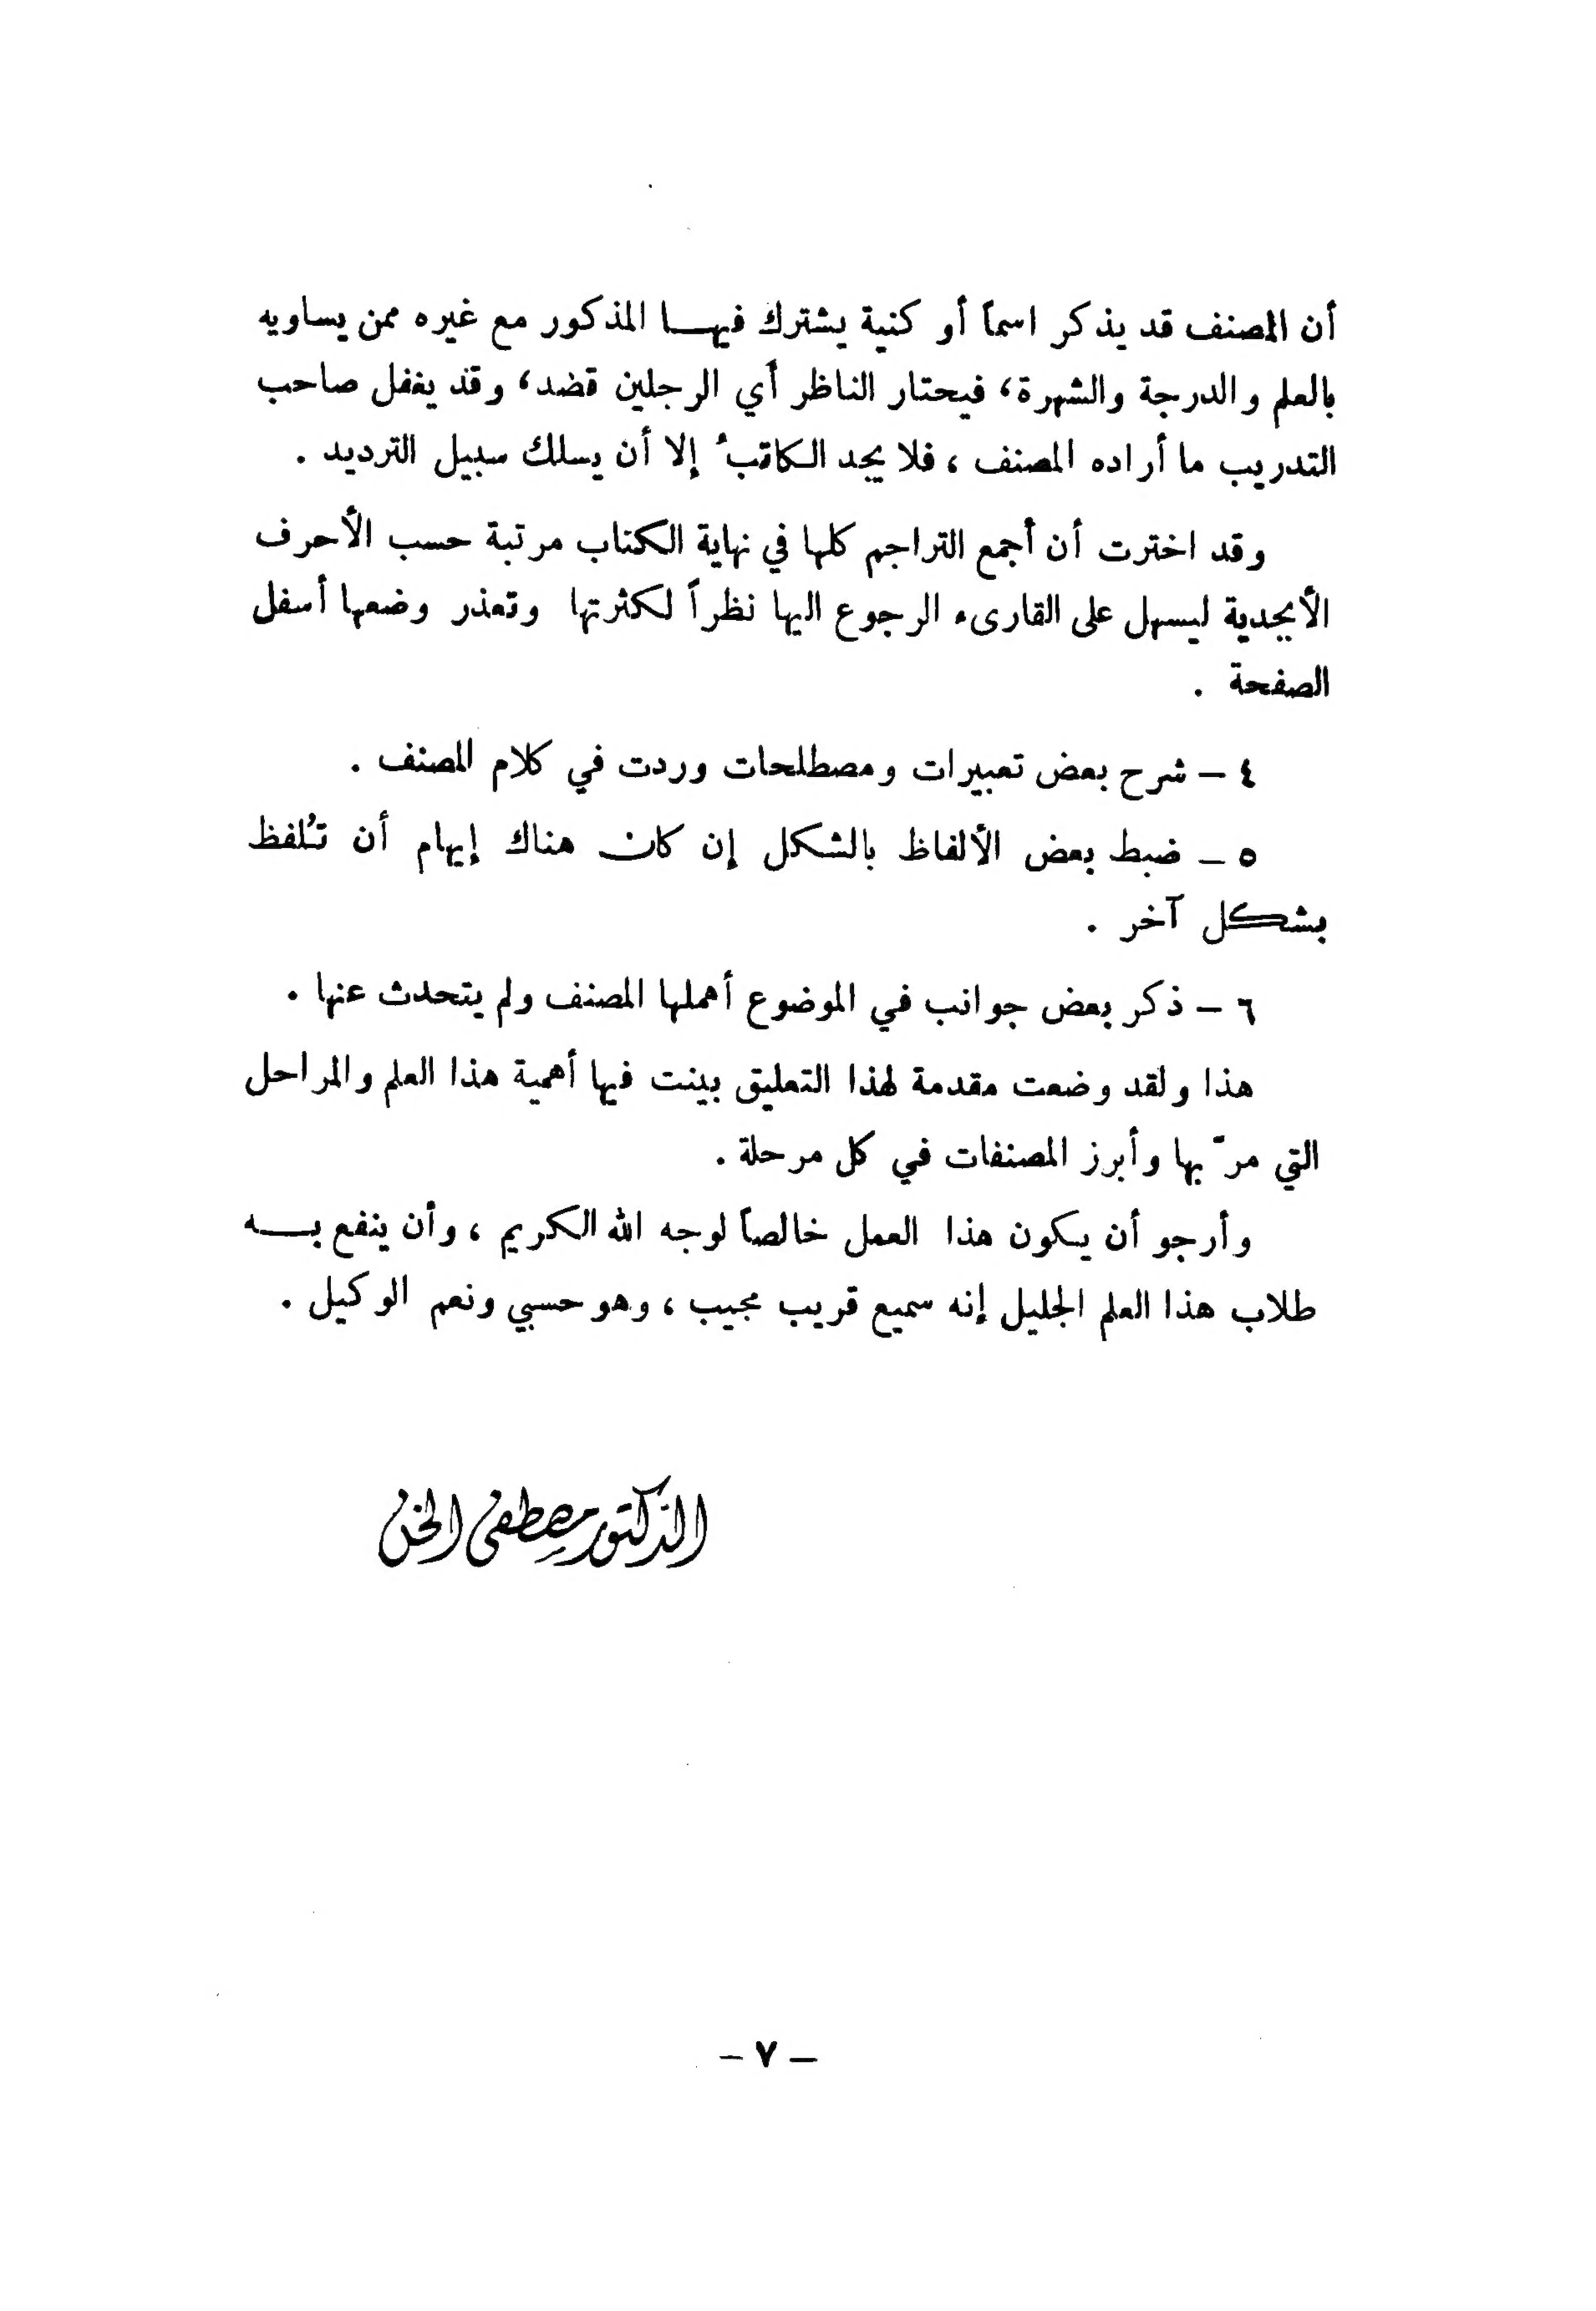 أن المصنف قد يذكر اسماً أو كنية يشترك فيهــا المذكور مع غيره ممن يساويه
بالعلم والدرجة والشهرة، فيحتار الناظر أي الرجلين قضد، وقد يغفل صاحب
التدريب ما أراده المصنف ، فلا يجد الكاتبُ إلا أن يسلك سبيل الترديد .
وقد اخترت أن أجمع التراجم كلها في نهاية الكتاب مرتبة حسب الأحرف
الأبجدية ليسهل على القارىء الرجوع اليها نظراً لكثرتها وتعذر وضعها أسفل
الصفحة .
٤ – شرح بعض تعبيرات ومصطلحات وردت في كلام المصنف .
٥ – ضبط بعض الألفاظ بالشكل إن كان هناك إيهام أن تُلفظ
بشكل آخر .
٦ – ذكر بعض جوانب في الموضوع أهملها المصنف ولم يتحدث عنها .
هذا ولقد وضعت مقدمة لهذا التعليق بينت فيها أهمية هذا العلم والمراحل
التي مرّ بها وأبرز المصنفات في كل مرحلة .
وأرجو أن يكون هذا العمل خالصاً لوجه الله الكريم ، وأن ينفع بــه
طلاب هذا العلم الجليل إنه سميع قريب مجيب ، وهو حسبي ونعم الوكيل .
الدكتور مصطفى الخن
– ٧ –